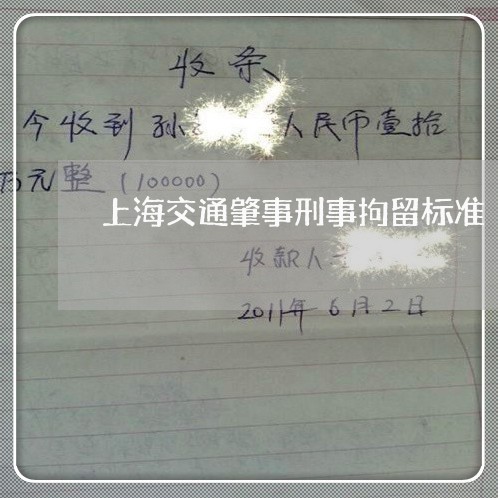 收条
今收到孙 人民币壹拾
万元整（100000）
上海交通肇事刑事拘留标准
收款人
2011年6月2日